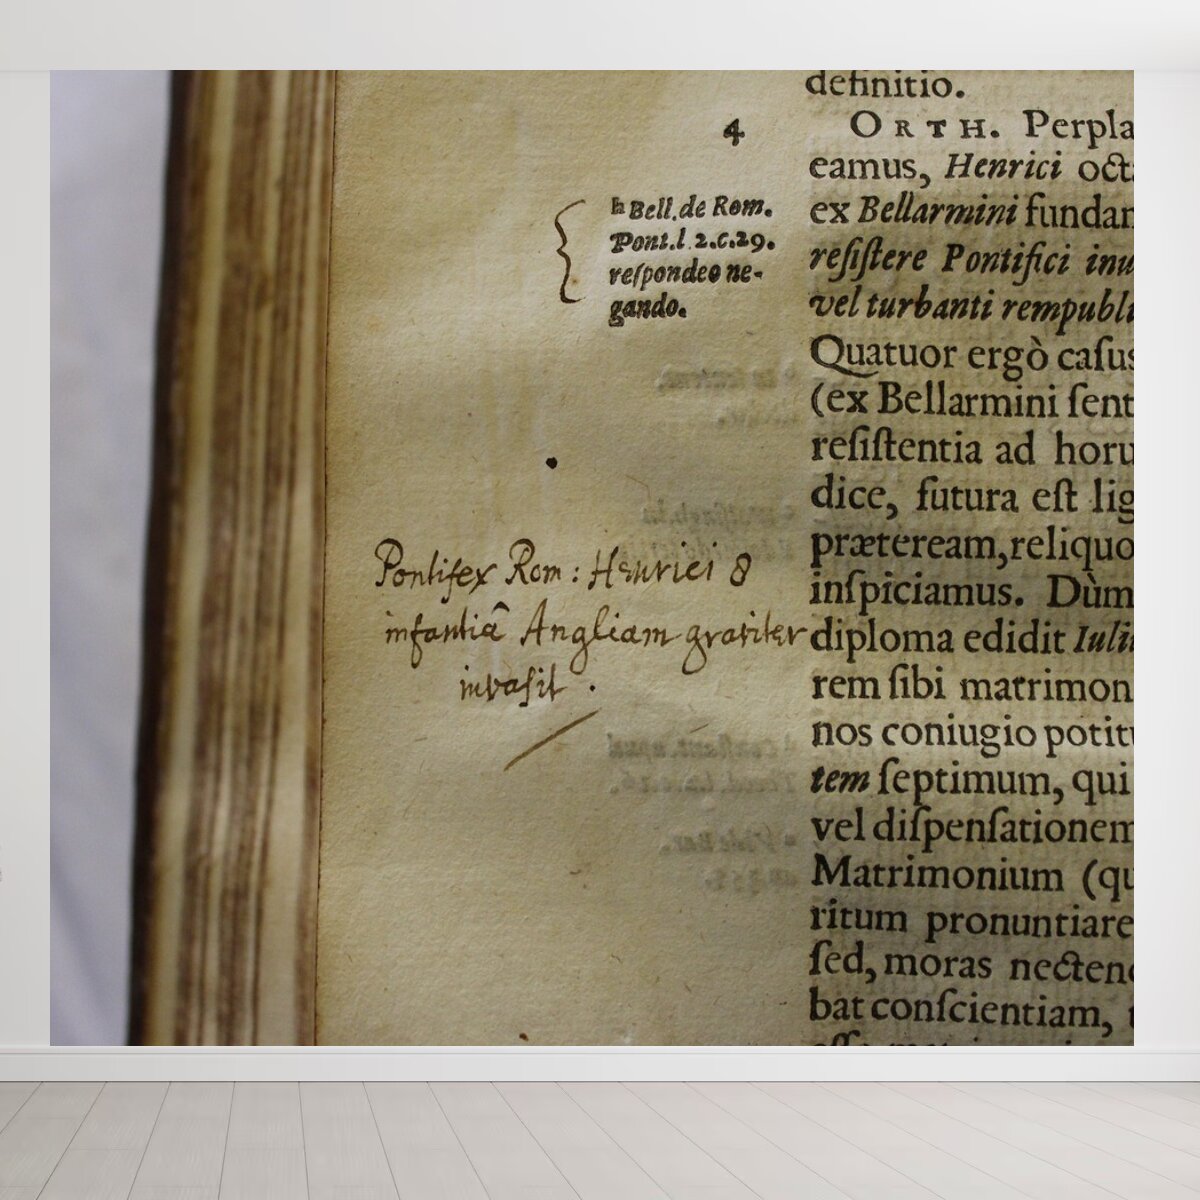 definitio.
4
ORTH. Perpla
eamus, Henrici oct
h Bell. de Rom.
Pont. l. 2. c. 29.
reſpondeo ne-
gando.
ex Bellarmini fundam
reſiſtere Pontifici inu
vel turbanti rempubli
Quatuor ergò caſus
(ex Bellarmini ſent
reſiſtentia ad horu
dice, futura eſt lig
præteream, reliquo
inſpiciamus. Dùm
diploma edidit Iuliu
rem ſibi matrimon
nos coniugio potitu
tem ſeptimum, qui
vel diſpenſationem
Matrimonium (qu
ritum pronuntiare
ſed, moras nectend
bat conſcientiam,
Pontifex Rom: Henrici 8
infantiâ Angliam graviter
invasit.